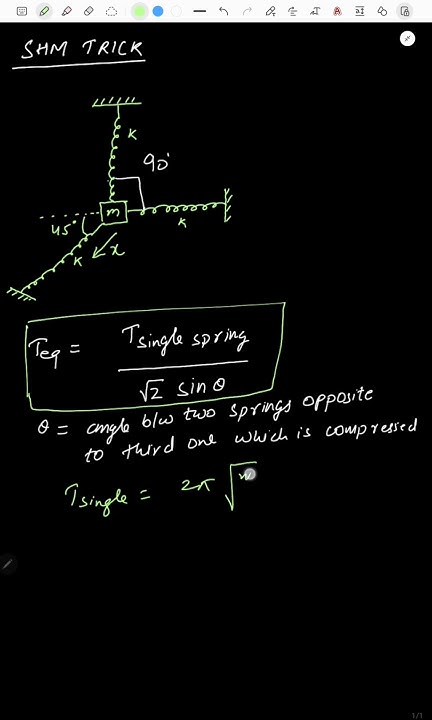 SHM TRICK
K
90°
m
45°
K
K
x
Teq = Tsingle spring / √2 sin θ
θ = angle b/w two springs opposite
to third one which is compressed
Tsingle = 2π √m
1/1